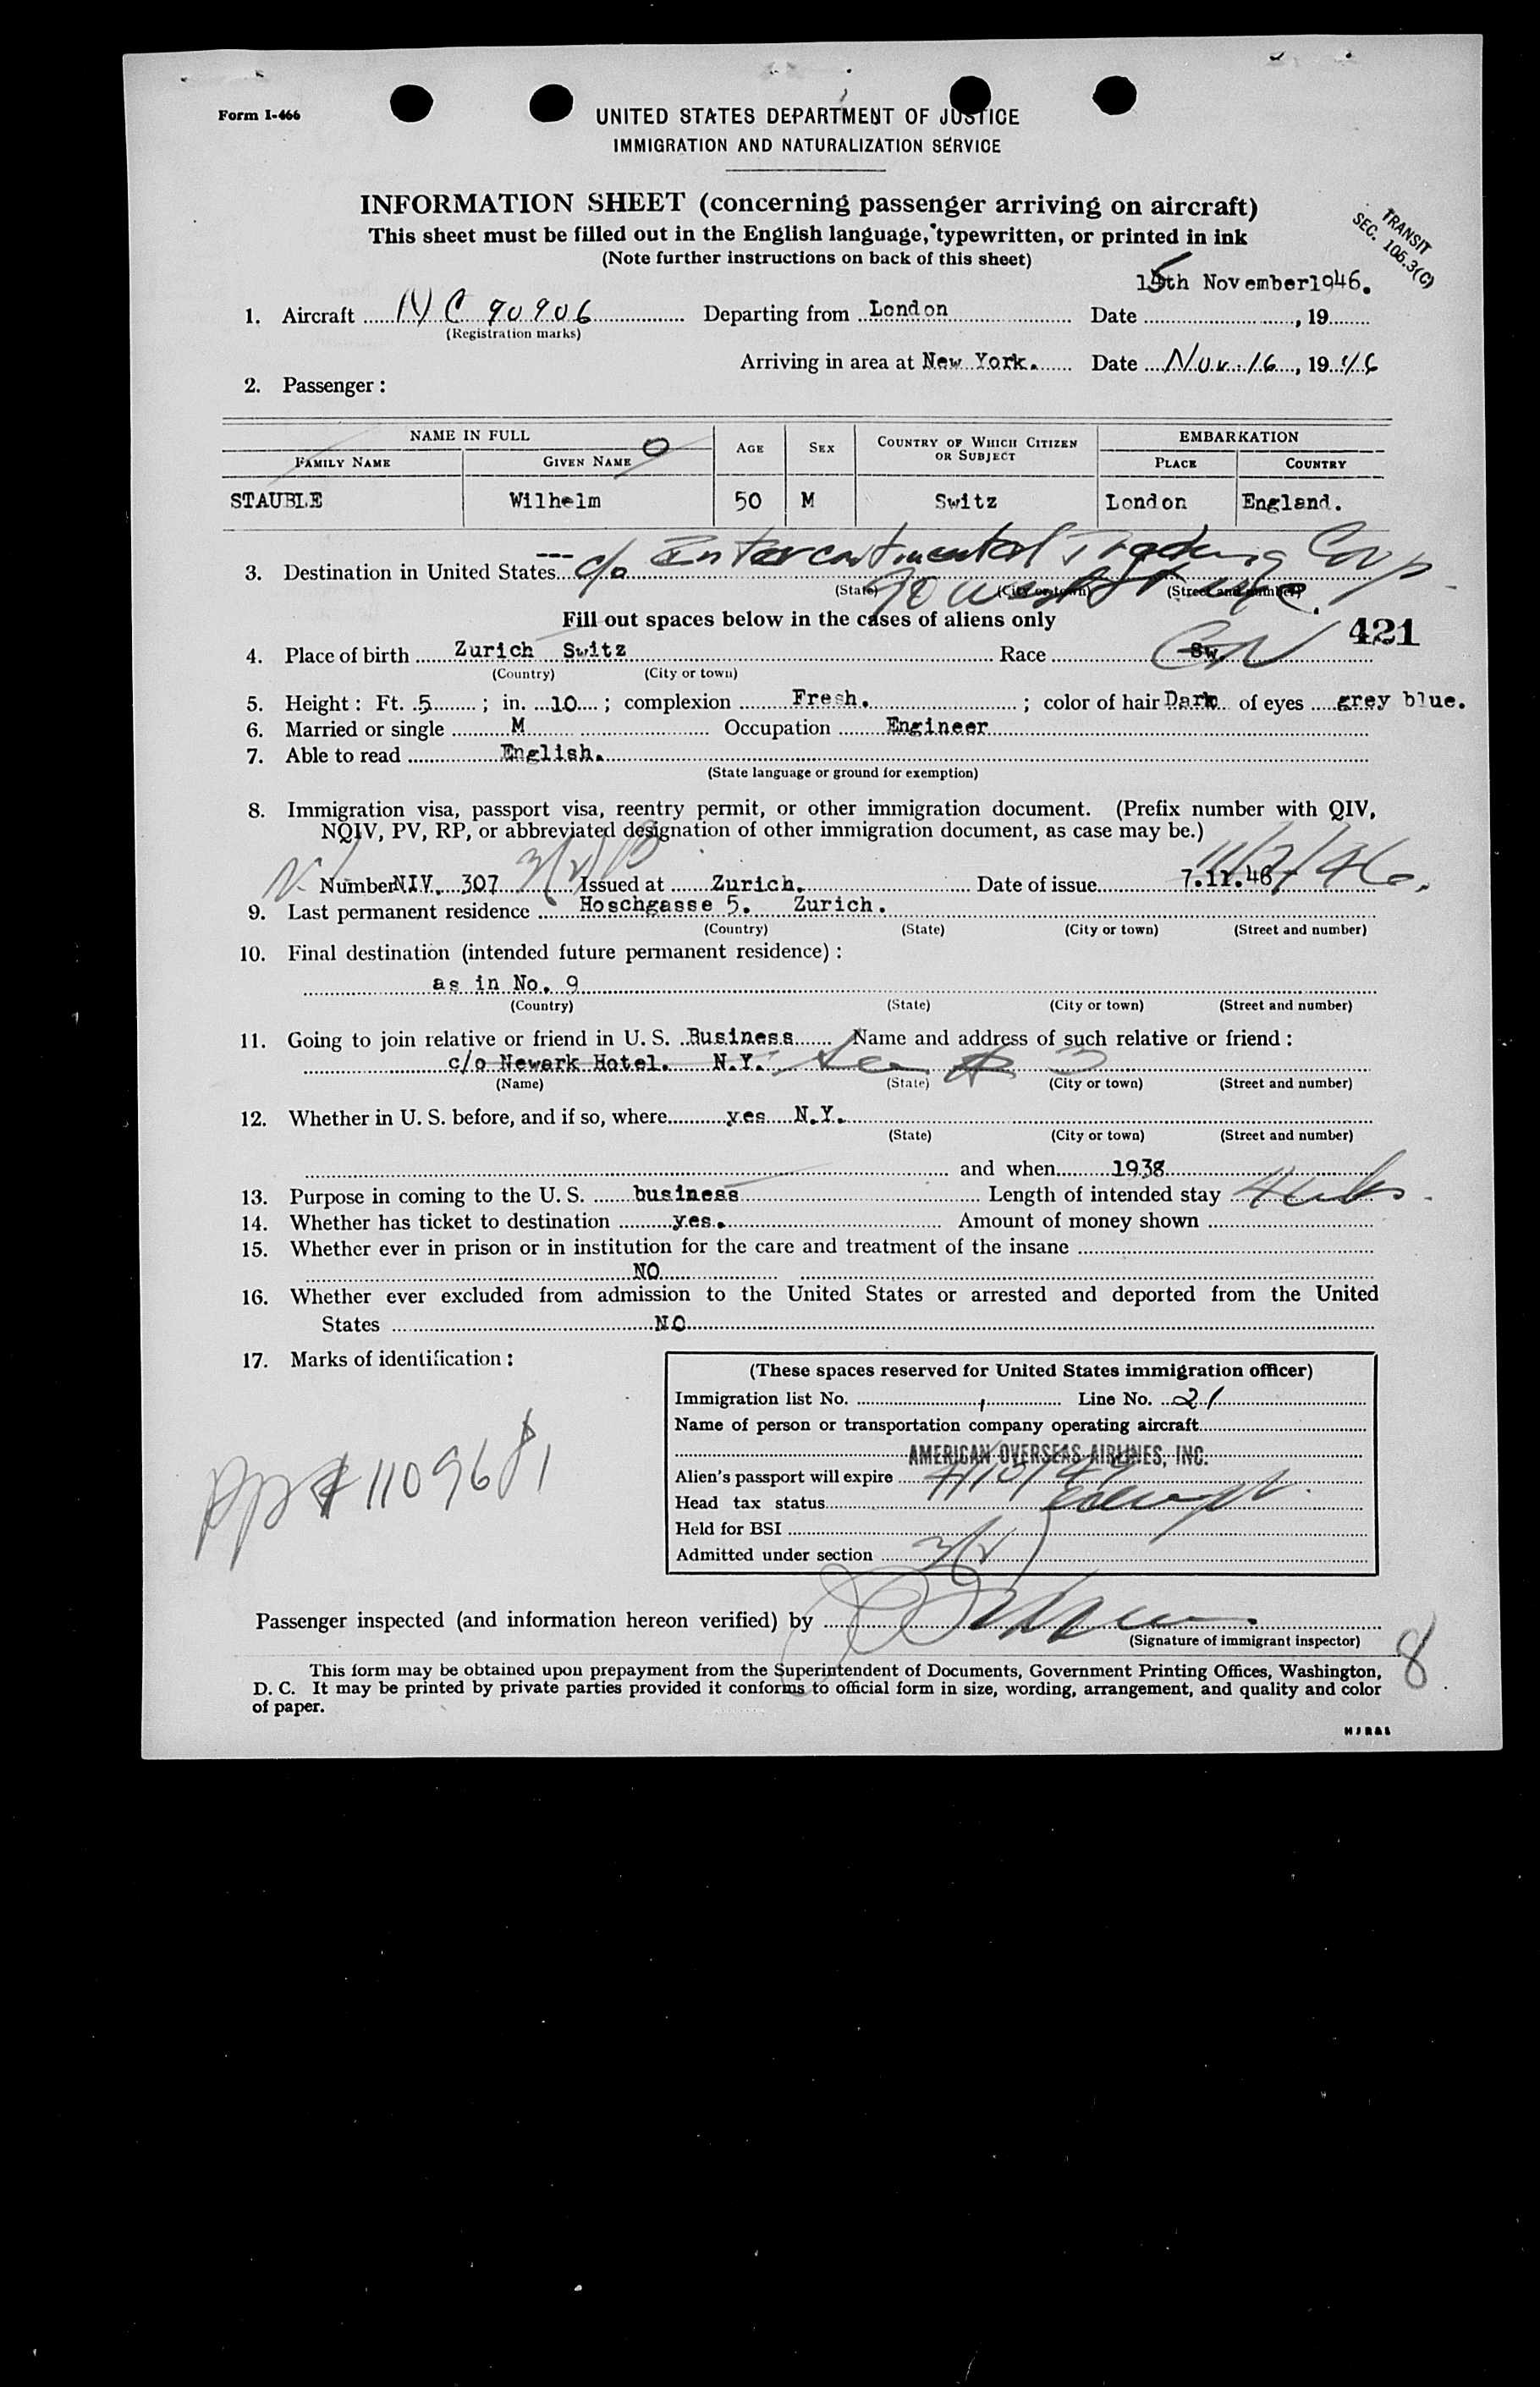 Form I-466
UNITED STATES DEPARTMENT OF JUSTICE
IMMIGRATION AND NATURALIZATION SERVICE
INFORMATION SHEET (concerning passenger arriving on aircraft)
This sheet must be filled out in the English language, typewritten, or printed in ink
(Note further instructions on back of this sheet)
TRANSIT
SEC. 105.3(C)
15th November 1946.
1. Aircraft NC 90906 Departing from London Date , 19
(Registration marks)
Arriving in area at New York. Date Nov. 16, 1946
2. Passenger:
NAME IN FULL AGE SEX COUNTRY OF WHICH CITIZEN OR SUBJECT EMBARKATION
FAMILY NAME GIVEN NAME PLACE COUNTRY
STAUBLE Wilhelm 50 M Switz London England.
3. Destination in United States --- c/o Intercontinental Trading Corp
(State) (City or town) (Street and number)
90 West St
Fill out spaces below in the cases of aliens only
421
4. Place of birth Zurich Switz Race Sw
(Country) (City or town)
5. Height: Ft. 5 ; in. 10 ; complexion Fresh. ; color of hair Dark of eyes grey blue.
6. Married or single M Occupation Engineer
7. Able to read English.
(State language or ground for exemption)
8. Immigration visa, passport visa, reentry permit, or other immigration document. (Prefix number with QIV,
NQIV, PV, RP, or abbreviated designation of other immigration document, as case may be.)
3/2/B 11/7/46.
Number NIV. 307 Issued at Zurich. Date of issue 7.11.46
9. Last permanent residence Hoschgasse 5. Zurich.
(Country) (State) (City or town) (Street and number)
10. Final destination (intended future permanent residence):
as in No. 9
(Country) (State) (City or town) (Street and number)
11. Going to join relative or friend in U. S. Business Name and address of such relative or friend:
c/o Newark Hotel. N.Y. 3
(Name) (State) (City or town) (Street and number)
12. Whether in U. S. before, and if so, where yes N.Y.
(State) (City or town) (Street and number)
and when 1938
13. Purpose in coming to the U. S. business Length of intended stay 4 wks
14. Whether has ticket to destination yes. Amount of money shown
15. Whether ever in prison or in institution for the care and treatment of the insane
NO
16. Whether ever excluded from admission to the United States or arrested and deported from the United
States NO
17. Marks of identification:
(These spaces reserved for United States immigration officer)
Immigration list No. 1 Line No. 21
Name of person or transportation company operating aircraft
AMERICAN OVERSEAS AIRLINES, INC.
Alien's passport will expire
Head tax status exempt
Held for BSI
Admitted under section 3/2
Passenger inspected (and information hereon verified) by
(Signature of immigrant inspector)
8
This form may be obtained upon prepayment from the Superintendent of Documents, Government Printing Offices, Washington,
D. C. It may be printed by private parties provided it conforms to official form in size, wording, arrangement, and quality and color
of paper.